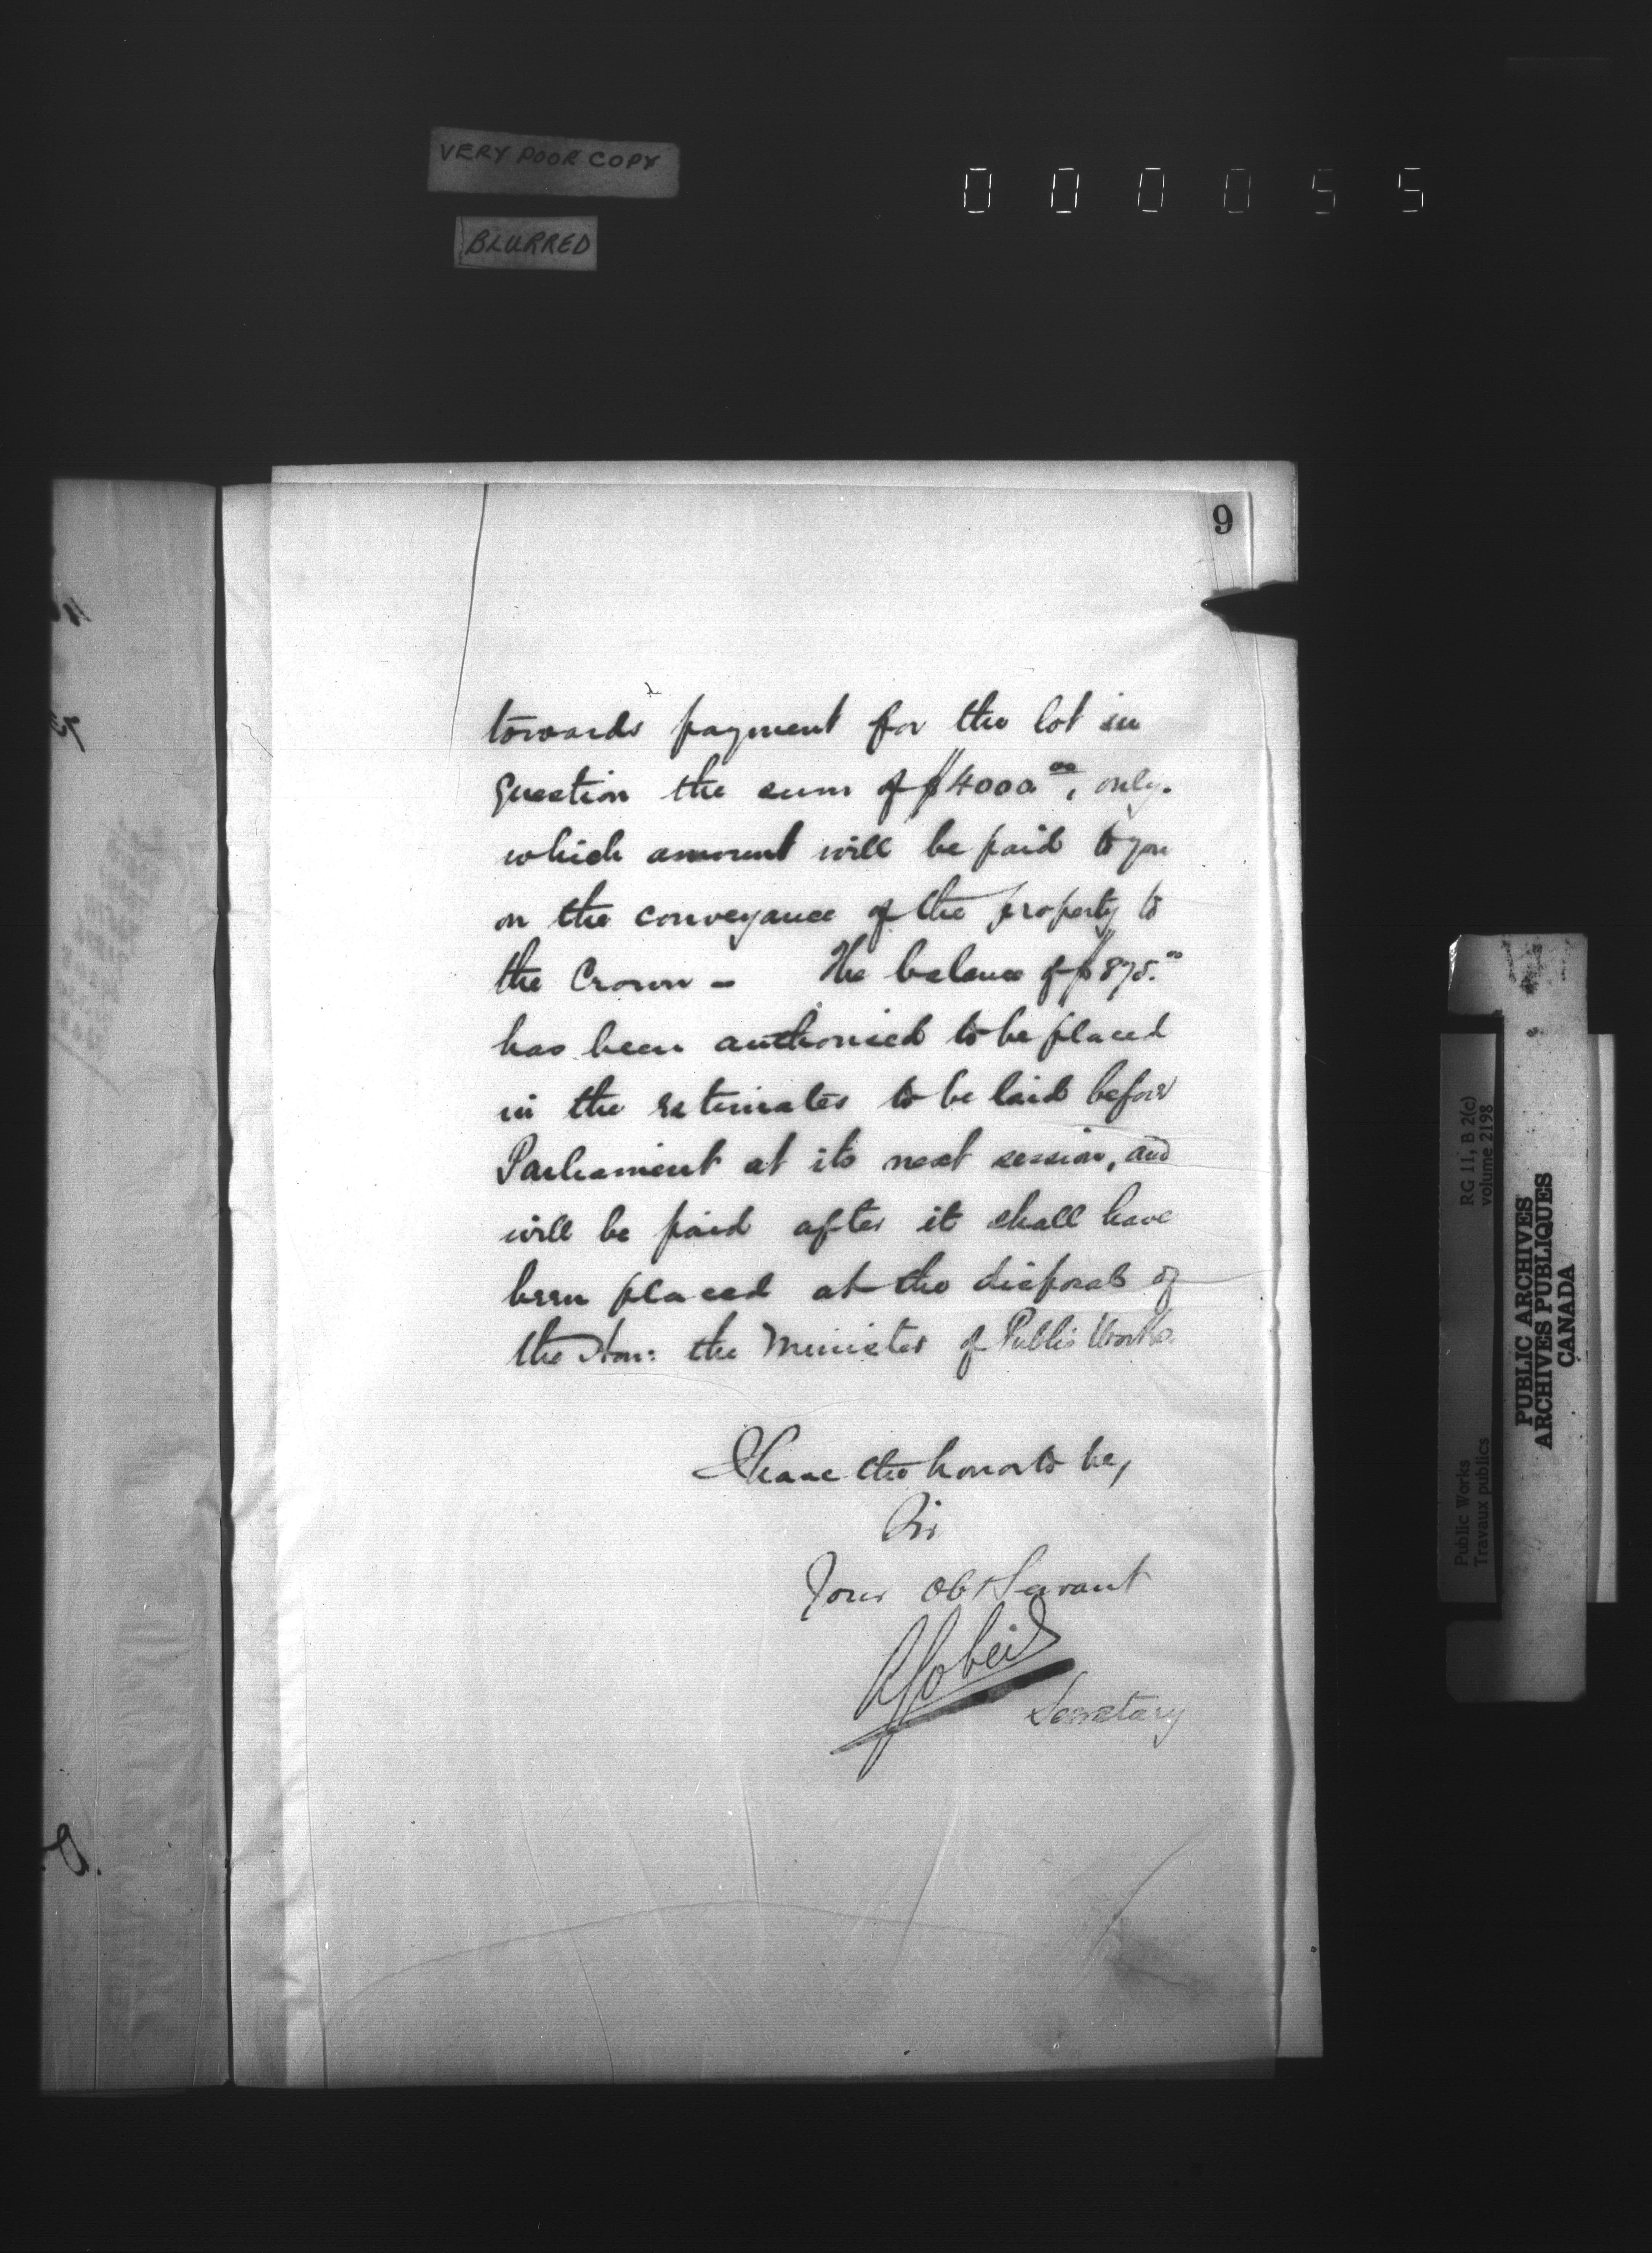 VERY POOR COPY
BLURRED
0 0 0 0 5 5
9
towards payment for the lot in
question the sum of $4000.00, only.
which amount will be paid to you
on the conveyance of the property to
the Crown - The balance of $875.00
has been authorised to be placed
in the estimates to be laid before
Parliament at its next session, and
will be paid after it shall have
been placed at the disposal of
the Hon: the Minister of Public Works.
I have the honor to be,
Sir
Your Obt Servant
Gobeil
Secretary
Public Works
Travaux publics
RG 11, B 2(c)
volume 2198
PUBLIC ARCHIVES
ARCHIVES PUBLIQUES
CANADA